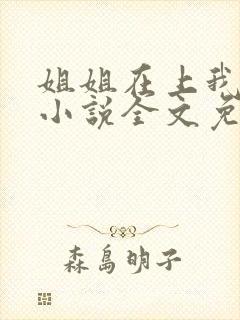 姐姐在上我
小说全文免
森島明子